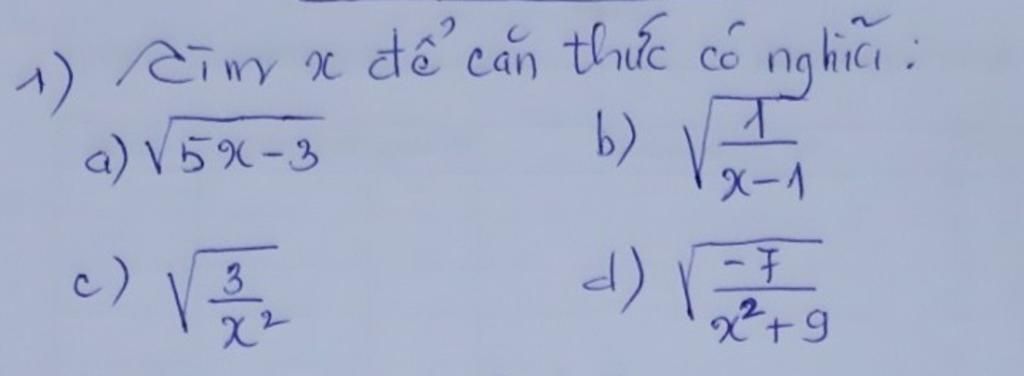 1) Tìm x để căn thức có nghĩã:
a) √(5x-3) b) √(1/(x-1))
c) √(3/x²) d) √(-7/(x²+9))